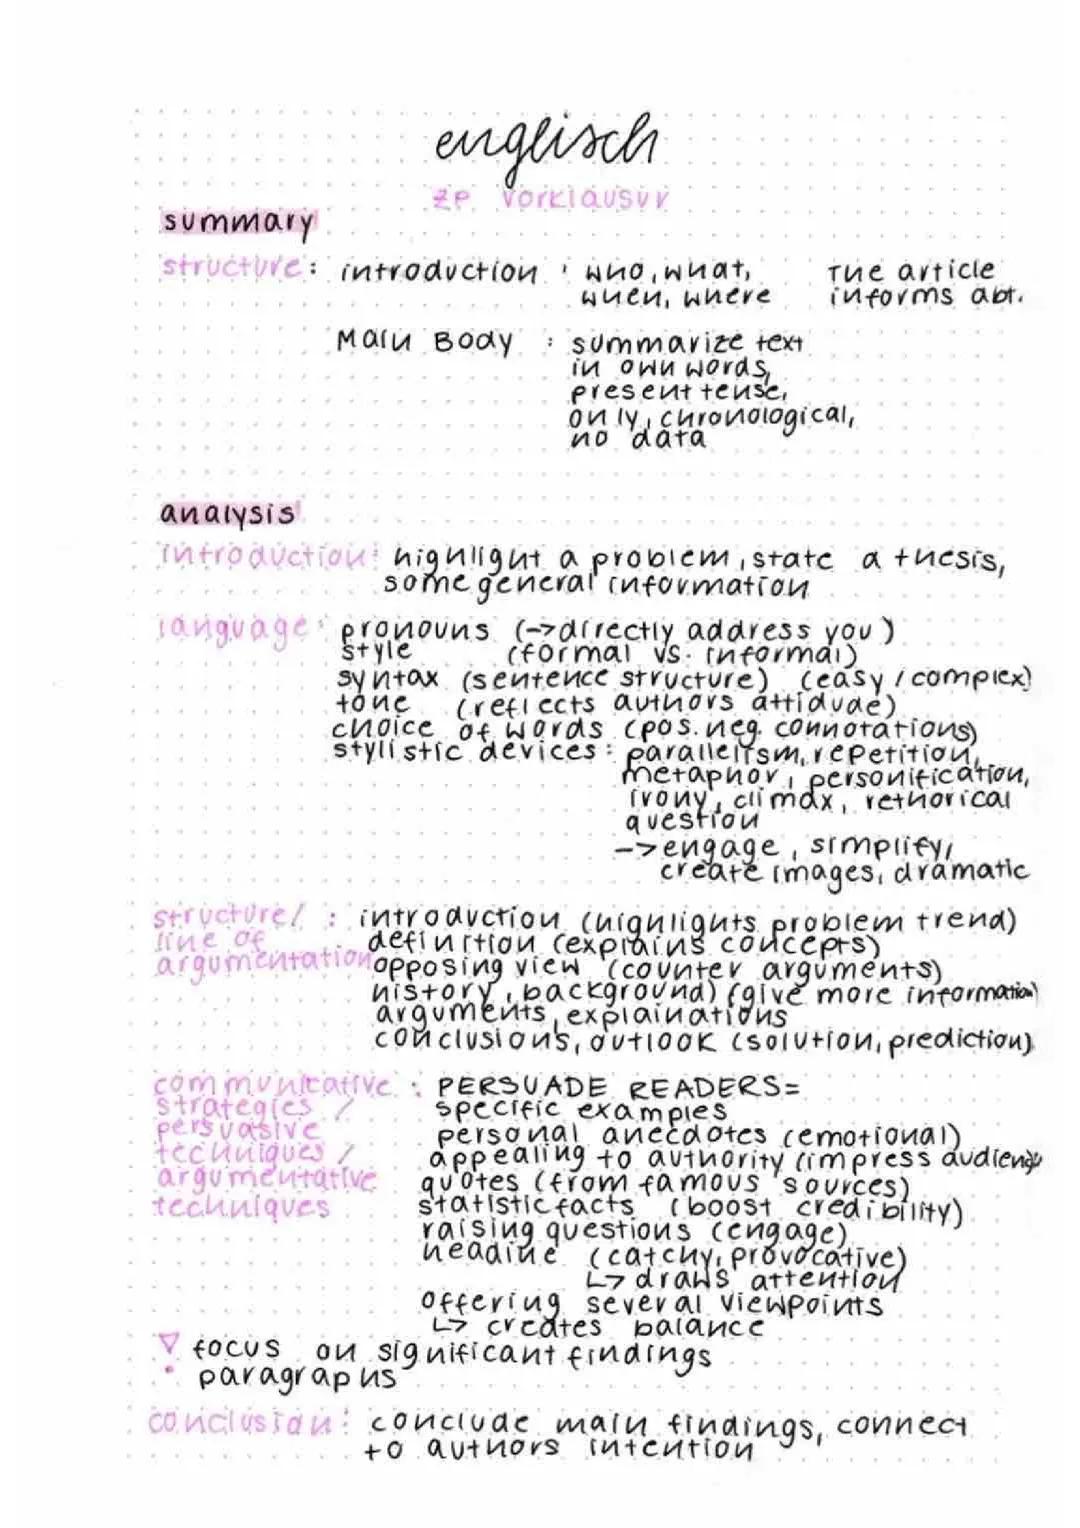 englisch
ZP Vorklausur
summary
structure: introduction : who, what, The article
when, where informs abt.
Main Body : summarize text
in own words,
present tense,
only, chronological,
no data
analysis
introduction: highlight a problem, state a thesis,
some general information
language: pronouns (->directly address you)
style (formal vs. informal)
syntax (sentence structure) (easy / complex)
tone (reflects authors attidude)
choice of words (pos. neg. connotations)
stylistic devices: parallelism, repetition,
metaphor, personification,
irony, climax, rethorical
question
->engage, simplify,
create images, dramatic
structure/ : introduction (highlights problem trend)
line of definition (explains concepts)
argumentation opposing view (counter arguments)
history, background) (give more information)
arguments, explainations
conclusions, outlook (solution, prediction)
communicative : PERSUADE READERS=
strategies / specific examples
persvasive personal anecdotes (emotional)
techniques / appealing to authority (impress audience)
argumentative quotes (from famous sources)
techniques statistic facts (boost credibility)
raising questions (engage)
headine (catchy, provocative)
↳ draws attention
offering several viewpoints
↳ creates balance
▽ focus on significant findings
• paragraphs
conclusion: conclude main findings, connect
to authors intention